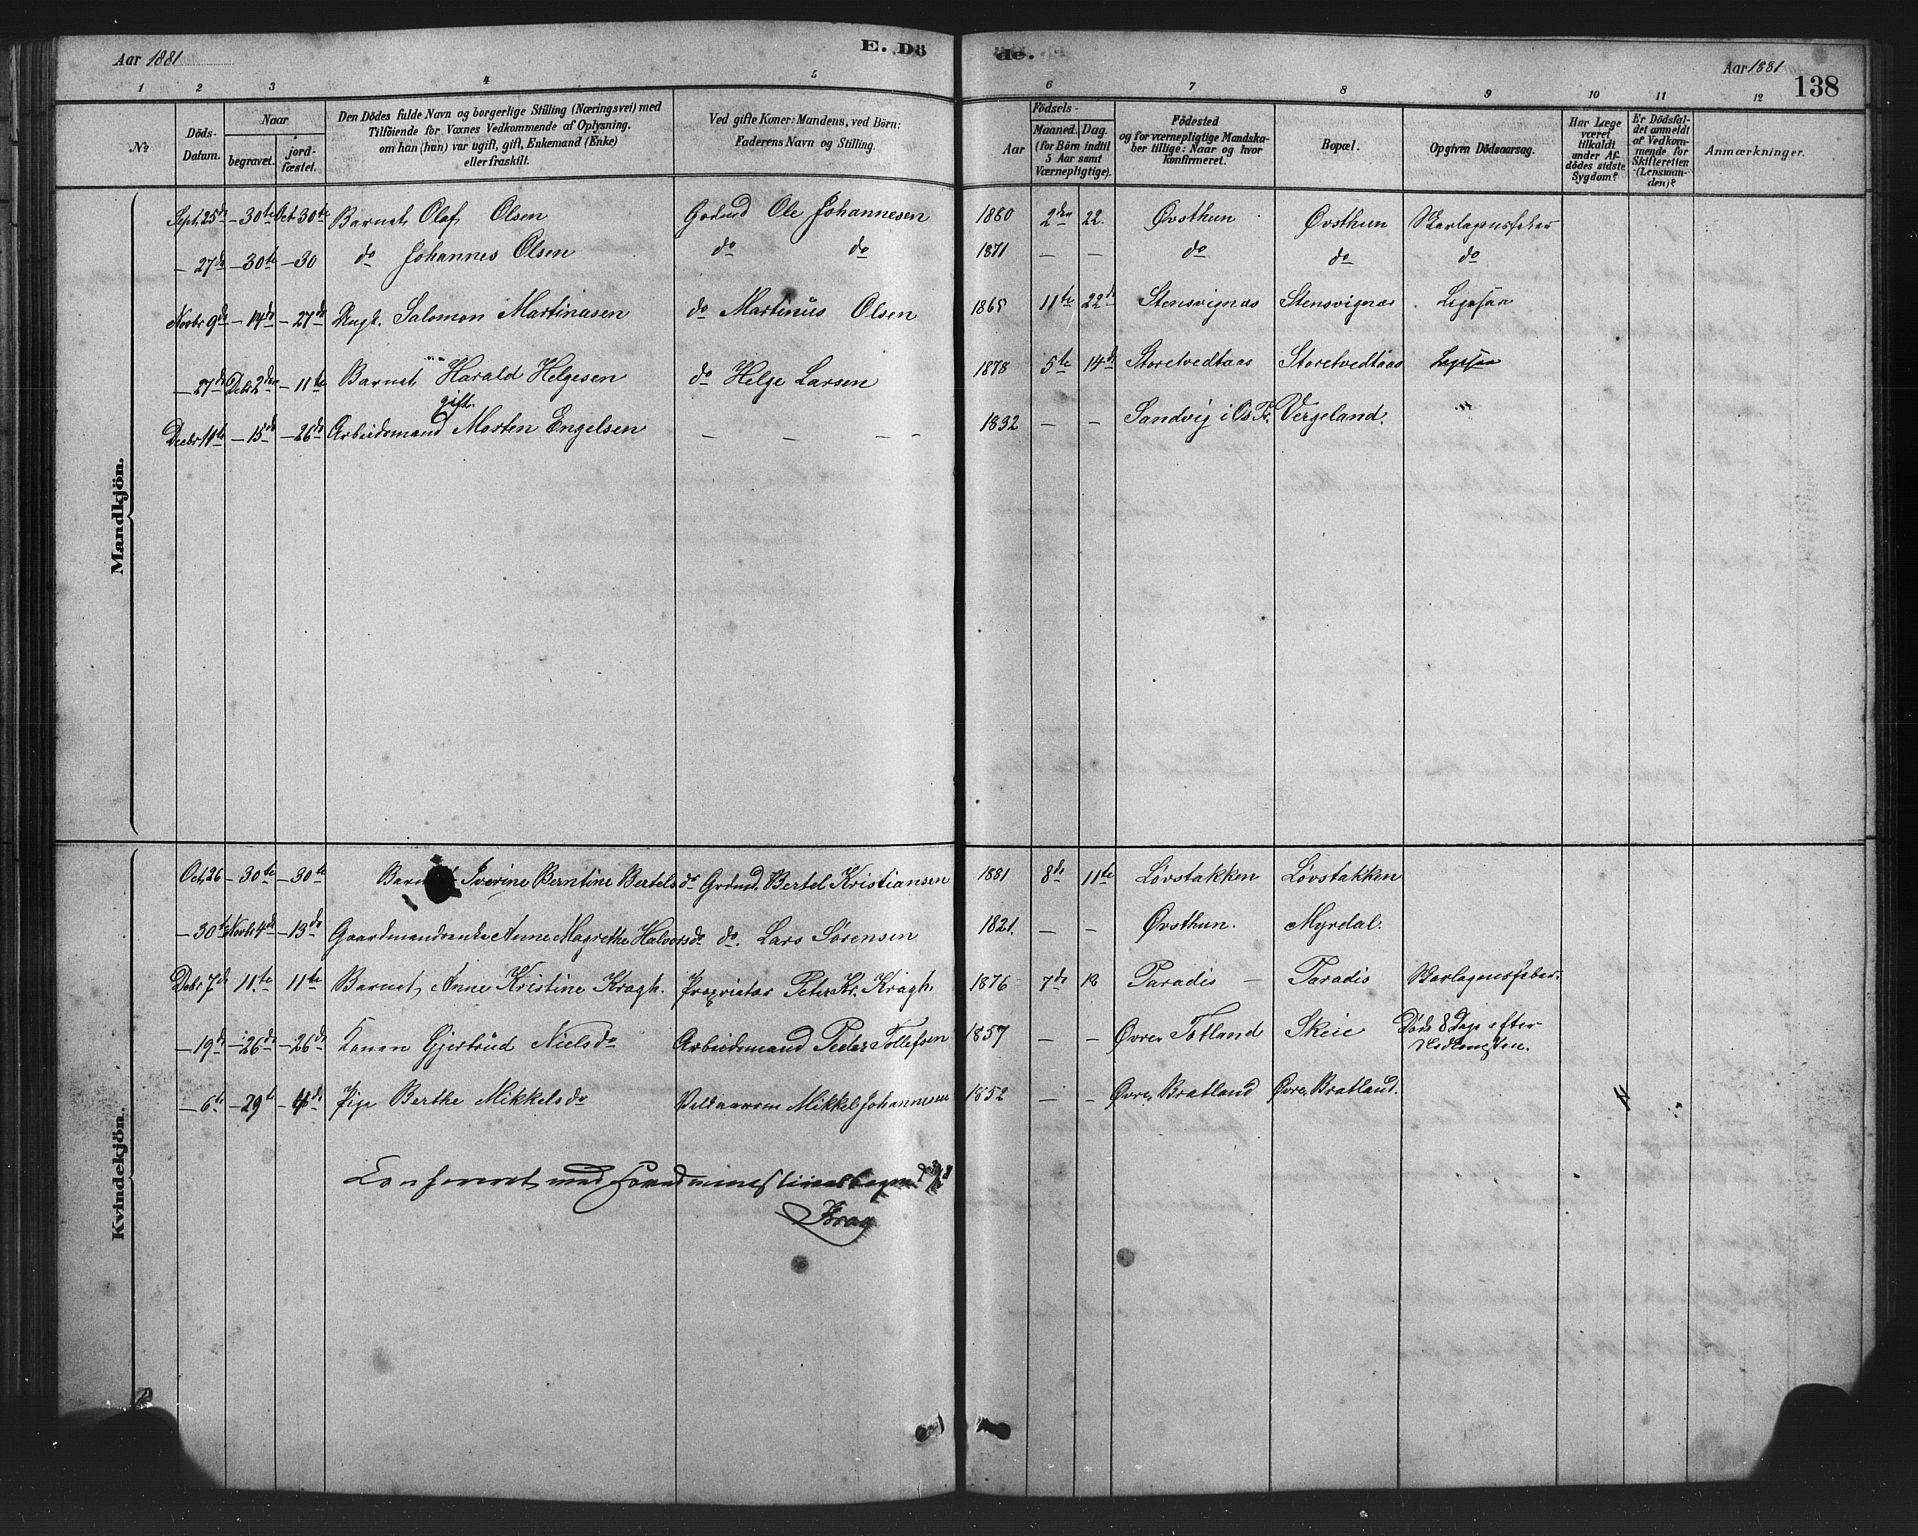 Aar 1881
E. Dö
de.
Aar 1881
138
1 2 3 4 5 6 7 8 9 10 11 12
No
Döds-Datum.
Naar
begravet.
jord-fæstet.
Den Dödes fulde Navn og borgerlige Stilling (Næringsvei) med
Tilföiende for Voxnes Vedkommende af Oplysning,
om han (hun) var ugift, gift, Enkemand (Enke)
eller fraskilt.
Ved gifte Koner: Mandens, ved Börn:
Faderens Navn og Stilling.
Födsels-
Aar
Maaned. Dag.
(for Börn indtil
5 Aar samt
Værnepligtige).
Födested
og for værnepligtige Mandska-
ber tillige: Naar og hvor
konfirmeret.
Bopæl.
Opgiven Dödsaarsag.
Har Læge
været
tilkaldt
under Af-
dödes sidste
Sygdom?
Er Dödsfal-
det anmeldt
af Vedkom-
mende for
Skifteretten
(Lensman-
den)?
Anmærkninger.
Mandkjön.
Sept. 25de — 30te Oct 30te Barnet Olaf Olsen Gaardmd Ole Johannesen 1880 2den 22. Øvsthun Øvsthun Skarlagensfeber
— 27de — 30te — 30 do Johannes Olsen do do 1871 — — do do do
Novbr 9de — 14de — 27de Ungk. Salomon Martinusen do Martinus Olsen 1865 11te 22de Stensvignæs Stensvignæs
— 27de Debr 2den — 11te Barnet Harald Helgesen do Helge Larsen 1878 5te 14de Storetvedtaas Storetvedtaas
gift
Decbr 11te — 15de — 26de Arbeidsmand Morten Engelsen — — — — 1832 — — Sandvig i Os Pr. Vergeland. "
Kvindekjön.
Oct. 26 — 30te — 30te Iverine Berntine Bertelsdr Grdmd. Bertel Kristiansen 1881 8de 11te Løvstakken Løvstakken
— 30te Novbr 4de — 13de Gaardmandsenke Anne Magrethe Halvorsdr do. Lars Sørensen 1821. — — Øvsthun. Myrdal.
Debr 7de 11.te 11te Barnet Anne Kristine Kragh. Proprietær Peter Kr. Kragh. 1876 7de 12 Paradis — Paradis Skarlagensfeber.
— 19de — 26de — 26de Konen Gjertrud Nielsdr Arbeidsmand Peder Tollefsen 1857 — — Øvre Totland Skeie Døde 8 Dage efter
Nedkomsten.
— 6te — 29te — Pige Berthe Mikkelsdr Mikkel Johannesen 1852 — — Øvre Bratland Øvre Bratland.
Konfereret med
Krag